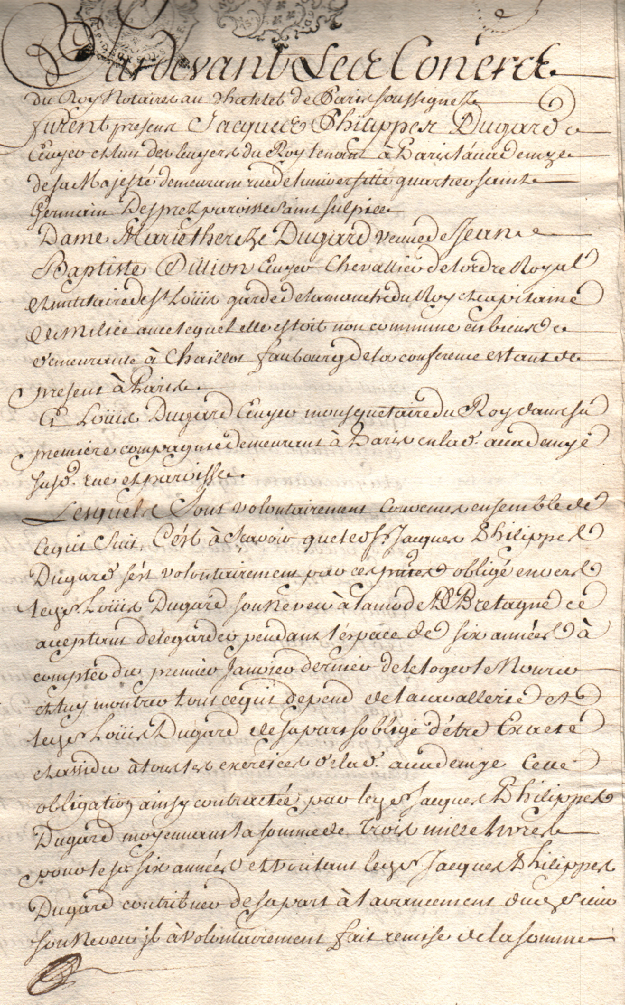 Pardevant Les Con.ers
du Roy Notaires au Chatelet de Paris soussignez
furent presens Jacques Philippes Dugard
Ecuyer et l'un des Ecuyers du Roy tenant à Paris l'academye
de sa Majesté demeurant rue de l'université quartier saint
Germain Desprez paroisse saint sulpice
Dame Marie thereze Dugard veuve de Jean
Baptiste Oillion Ecuyer Chevallier de l'ordre Royal
et militaire de St. Loüis garde de la manche du Roy et capitaine
de milice avec lequel elle estoit non commune en biens
demeurante à Chaillot faubourg de la conference estant de
present à Paris
Et Loüis Dugard Ecuyer mousquetaire du Roy dans sa
premiere compagnie demeurant à Paris en lad. academye
susd. rue et paroisse
Lesquels sont volontairement convenus ensemble de
ce qui suit C'est à scavoir que led. Sr. Jacques Philippes
Dugard s'est volontairement par ces pntes obligé envers
led. Sr. Loüis Dugard son Neveu à la mode de Bretagne ce
aceptant de le garder pendant l'espace de six années à
compter du premier Janvier dernier de le loger le Nourir
et luy montrer tout ce qui depend de la cavallerie et
led. Sr. Loüis Dugard de sa part s'oblige d'être Exacte
et assidu à tous les exercices de lad. academye Cette
obligation ainsy contractée par led. Sr. Jacques Philippes
Dugard moyennant la somme de trois mille livres
pour les. six années et voulant led. Sr. Jacques Philippes
Dugard contribuer de sa part à l'avancement dud. Sr.
son Neveu il à volontairement fait remise de la somme